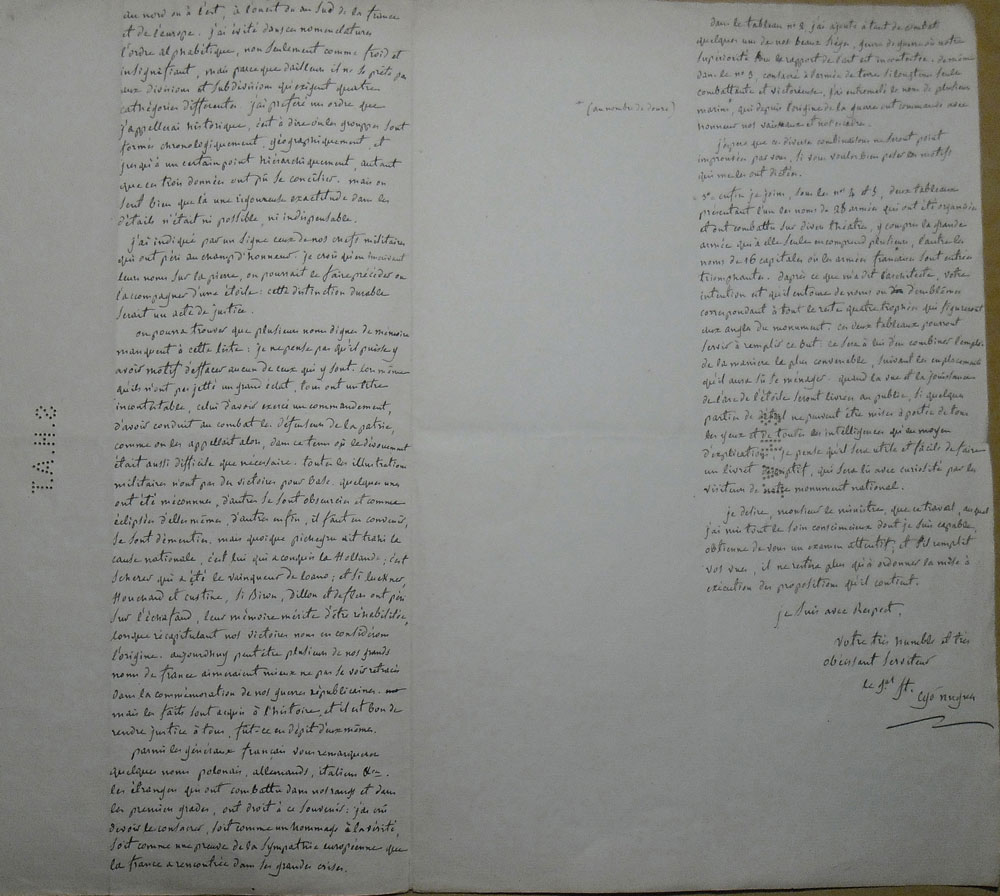 au nord ou à l'est, à l'ouest ou au sud de la france
et de l'europe. j'ai évité dans ce nomenclatures
l'ordre alphabétique, non seulement comme froid et
insignifiant, mais parceque d'ailleurs il ne se prête pas
aux divisions et subdivisions qui exigent quatre
cathégories différentes. j'ai préféré un ordre que
j'appellerai historique, c'est à dire où les grouppes sont
formés chronologiquement, géographiquement, et
jusqu'à un certain point hiérarchiquement, autant
que ces trois données ont pû se concilier. mais on
sent bien que là une rigoureuse exactitude dans les
détails n'était ni possible, ni indispensable.
j'ai indiqué par un signe ceux de nos chefs militaires
qui ont péri au champ d'honneur. je crois qu'en inscrivant
leurs noms sur la pierre, on pourrait le faire précéder ou
l'accompagner d'une étoile: cette distinction durable
serait un acte de justice.
on pourra trouver que plusieurs noms dignes de mémoire
manquent à cette liste: je ne pense pas qu'il puisse y
avoir motif d'effacer aucun de ceux qui y sont. lors même
qu'ils n'ont pas jetté un grand éclat, tous ont un titre
incontestable, celui d'avoir exercé un commandement,
d'avoir conduit au combat les défenseurs de la patrie,
comme on les appellait alors, dans ce tems où le dévouement
était aussi difficile que nécessaire. toutes les illustrations
militaires n'ont pas des victoires pour base. quelques unes
ont été méconnues, d'autres se sont obscurcies et comme
éclipsées d'elles mêmes, d'autres enfin, il faut en convenir,
se sont démenties. mais quoique pichegru ait trahi la
cause nationale, c'est lui qui a conquis la Hollande; c'est
Scherer qui a été le vainqueur de loano; et si luckner,
Houchard et custine, si Biron, Dillon et deflers ont péri
sur l'échafaud, leur mémoire mérite d'être réhabilitée,
lorsque récapitulant nos victoires nous en considérons
l'origine. aujourdhuy peut être plusieurs de nos grands
noms de france aimeraient mieux ne pas se voir retracés
dans la commémoration de nos guerres républicaines.
mais les faits sont acquis à l'histoire, et il est bon de
rendre justice à tous, fût-ce en dépit d'eux mêmes.
parmi les généraux français vous remarquerez
quelques noms polonais, allemands, italiens &ca.
les étrangers qui ont combattu dans nos rangs et dans
les premiers grades, ont droit à ce souvenir: j'ai crû
devoir le consacrer, soit comme un hommage à la vérité,
soit comme une preuve de la sympathie européenne que
la france a rencontrée dans ses grandes crises.
S.H.A.T.
(au nombre de douze)
dans le tableau n° 2, j'ai ajouté à tant de combats
quelques uns de nos beaux sièges, genre de guerre où notre
supériorité sous le rapport de l'art est incontestée. de même
dans le n° 3, consacré à l'armée de terre si longtems seule
combattante et victorieuse, j'ai entremêlé le nom de plusieurs
marins, qui depuis l'origine de la guerre ont commandé avec
honneur nos vaisseaux et nos escadres.
j'espère que ces diverses combinaisons ne seront point
improuvées par vous, si vous voulez bien peser les motifs
qui me les ont dictées.
3° enfin je joins, sous les n° 4 et 5, deux tableaux
présentant l'un les noms de 28 armées qui ont été organisées
et ont combattu sur divers théâtres, y compris la grande
armée qui à elle seule en comprend plusieurs, l'autre les
noms de 16 capitales où les armées françaises sont entrées
triomphantes. d'après ce que m'a dit l'architecte, votre
intention est qu'il entoure de noms ou d'emblèmes
correspondant à tout le reste quatre trophées qui figureront
aux angles du monument. ces deux tableaux pourront
servir à remplir ce but. ce sera à lui d'en combiner l'emploi
de la manière la plus convenable, suivant les emplacemens
qu'il aura sû se ménager. quand la vue et la jouissance
de l'arc de l'étoile seront livrées au public, si quelques
parties de détail ne peuvent être mises à portée de tous
les yeux et de toutes les intelligences qu'au moyen
d'explications, je pense qu'il sera utile et facile de faire
un livret descriptif, qui sera lû avec curiosité par les
visiteurs de notre monument national.
je désire, monsieur le ministre, que ce travail, auquel
j'ai mis tout le soin consciencieux dont je suis capable,
obtienne de vous un examen attentif; et s'il remplit
vos vues, il ne restera plus qu'à ordonner la mise à
exécution des propositions qu'il contient.
je suis avec Respect,
votre très humble et très
obéissant serviteur
le gal St. Cyr Nugues